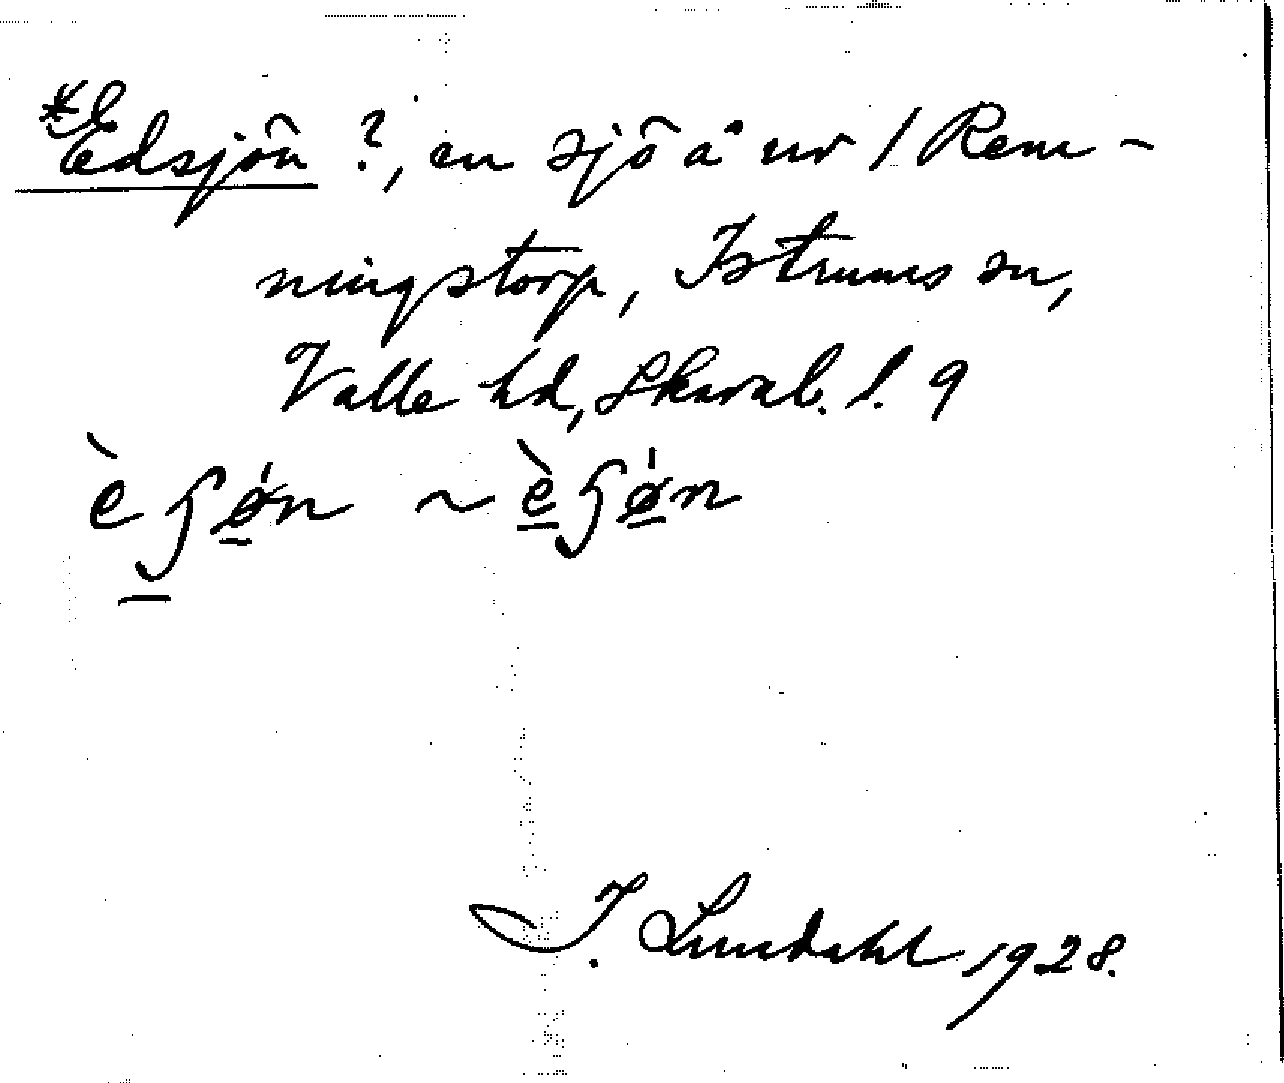 *Edsjön ?, en sjö å nr 1 Rem-
ningstorp, Istrums sn,
Valle hd, Skarab. l. 9
I. Lundahl 1928.